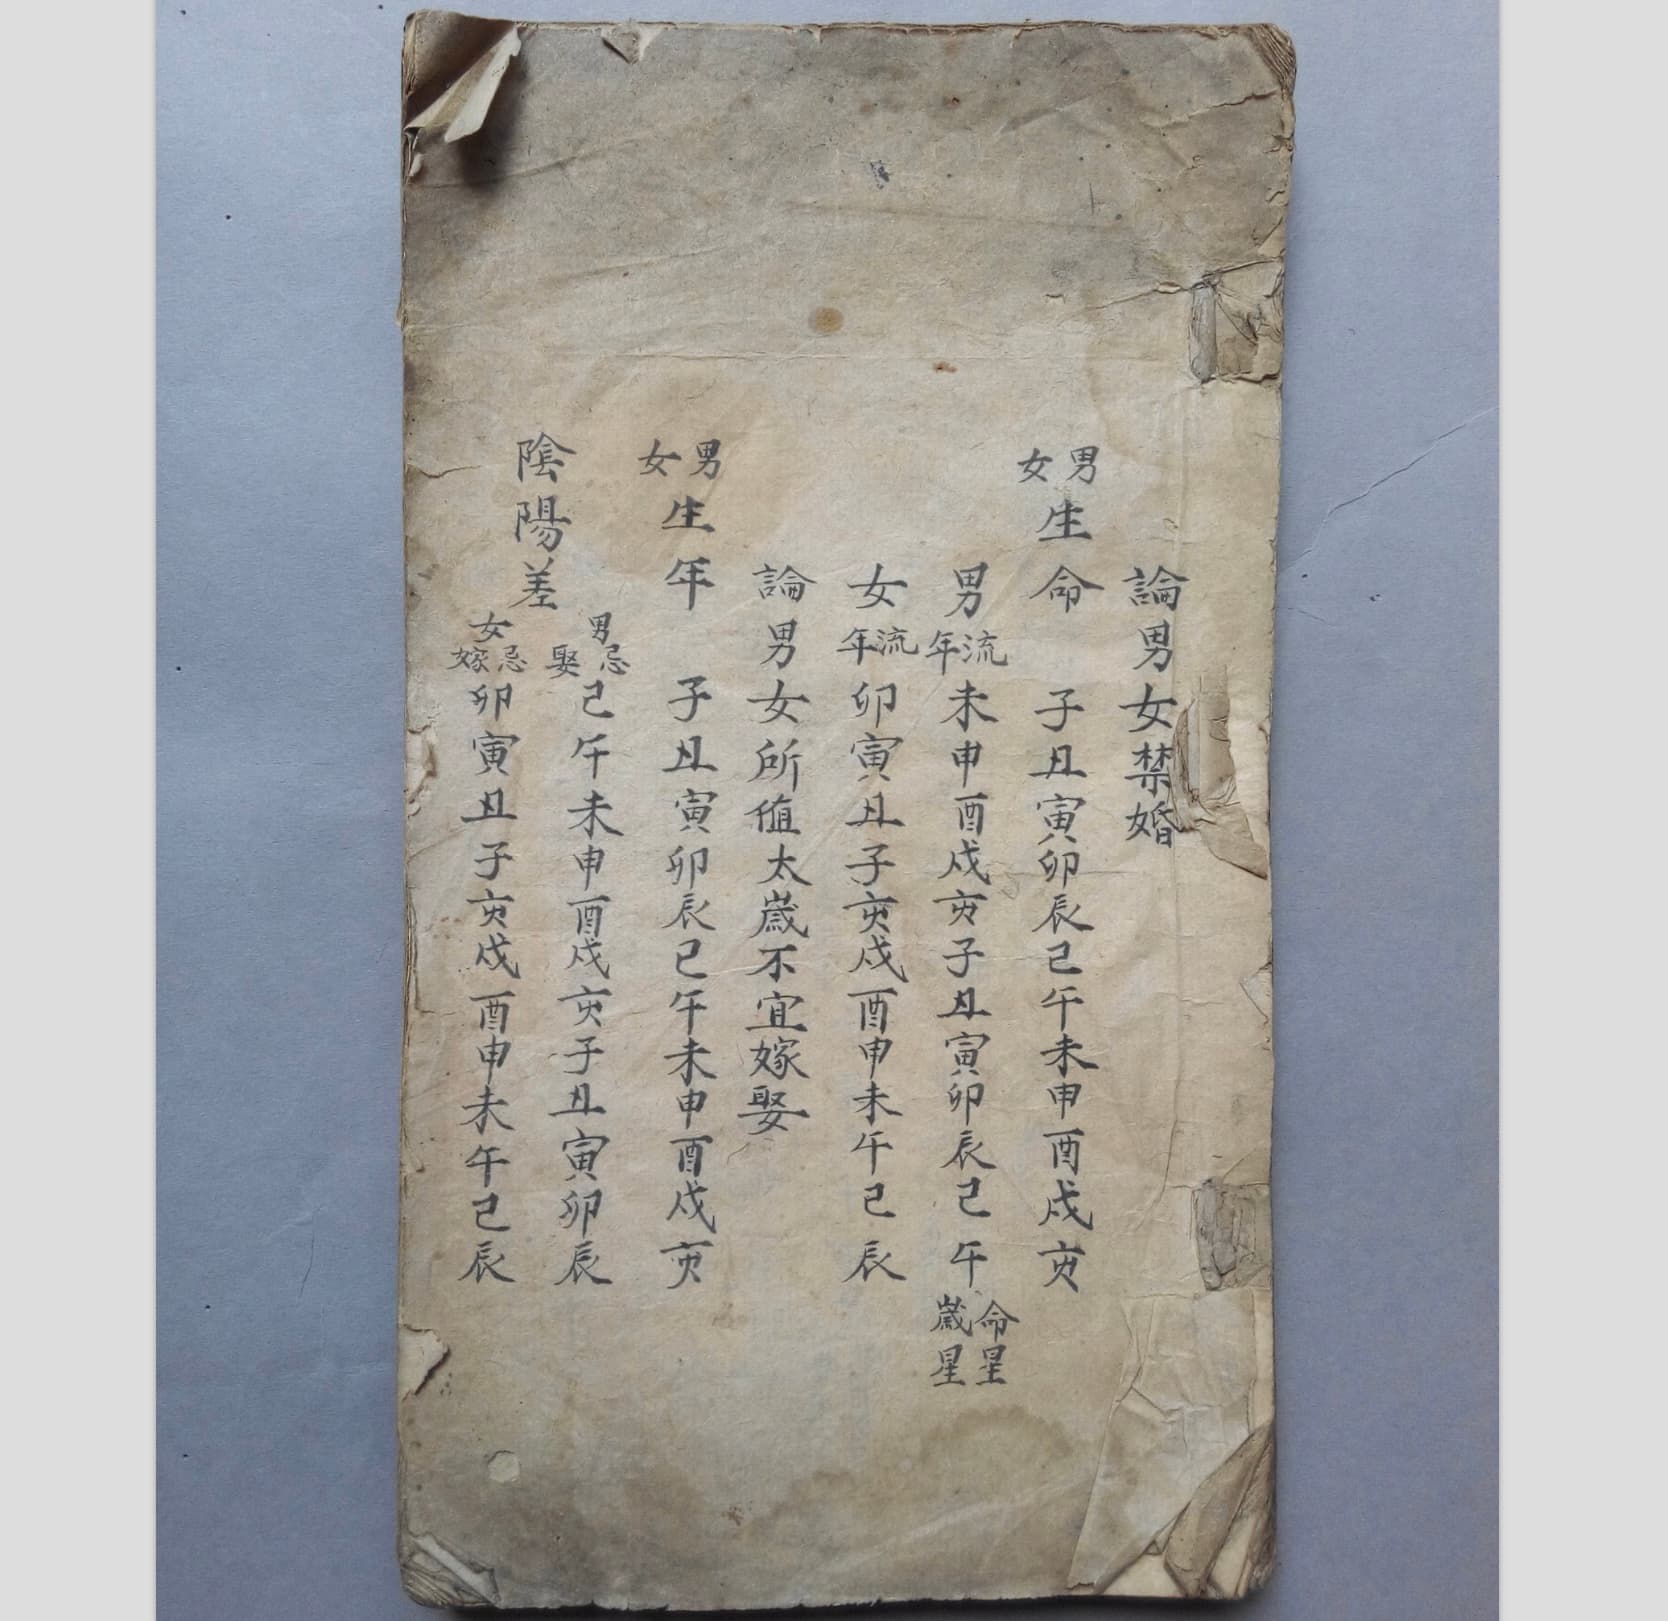 論男女禁婚
男女生命 子丑寅卯辰巳午未申酉戌亥
男流年未申酉戌亥子丑寅卯辰巳午命星歲星
女流年卯寅丑子亥戌酉申未午巳辰
論男女所值太歲不宜嫁娶
男女生年 子丑寅卯辰巳午未申酉戌亥
陰陽差
男忌娶巳午未申酉戌亥子丑寅卯辰
女忌嫁卯寅丑子亥戌酉申未午巳辰